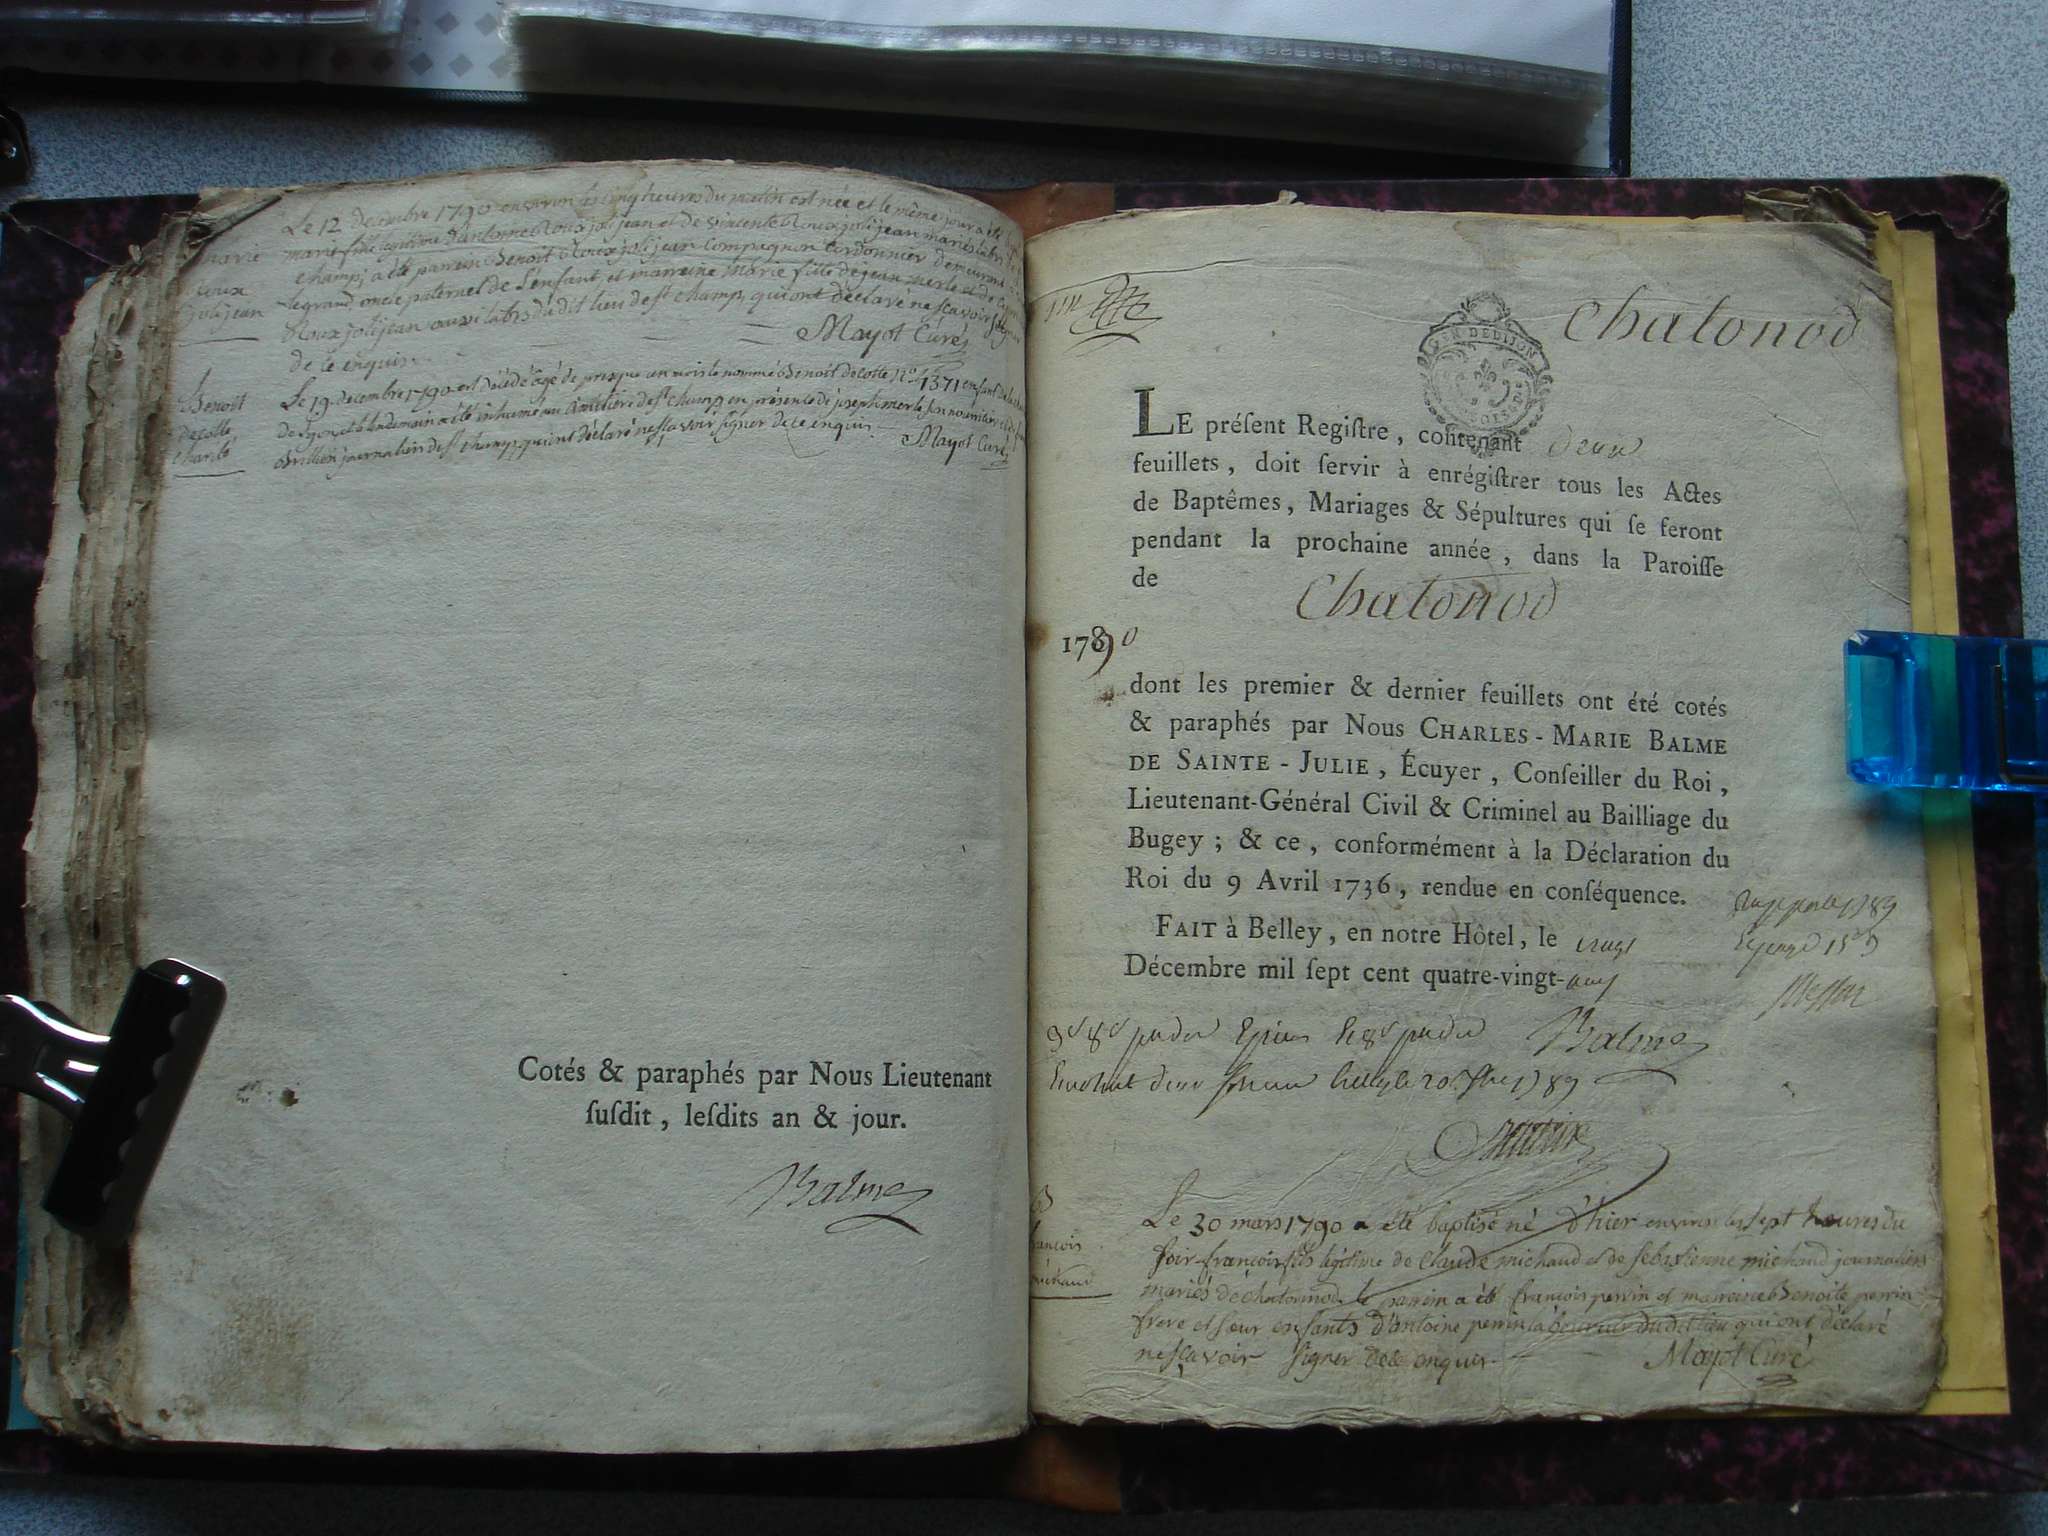 Le 12 decembre 1790 environ les cinq heures du matin est née et le même jour a été
marie
marie fille légitime d'antoine Roux joli jean et de vincente Roux joli jean mariés
Roux
champ, a été parrein Benoit Roux joli jean Compagnon Cordonnier demeurant
joli jean
legrand, oncle paternel de l'enfant, et marreine Marie fille de jean merle et de
Roux joli jean aussi labrs du dit lieu de st champ, qui ont déclaré ne sçavoir signer
de ce enquis.
Mayot Curé
Benoit
decotte
charité
Le 19 decembre 1790 est décédé âgé de presque un mois le nommé Benoit decotte No. 1371 enfant de la
de Lyon, et le lendemain a été inhumé au cimetière de st champ en présence de joseph merle son nourricier et de
Brillien journalier de st champ, qui ont déclaré ne sçavoir signer de ce enquis.
Mayot Curé
Cotés & paraphés par Nous Lieutenant
ſuſdit, leſdits an & jour.
Balme
Chatonod
GEN DE DIJON
LE préſent Regiſtre, contenant deux
feuillets, doit ſervir à enrégiſtrer tous les Actes
de Baptêmes, Mariages & Sépultures qui ſe feront
pendant la prochaine année, dans la Paroiſſe
de Chatonod
1790
dont les premier & dernier feuillets ont été cotés
& paraphés par Nous CHARLES-MARIE BALME
DE SAINTE-JULIE, Écuyer, Conſeiller du Roi,
Lieutenant-Général Civil & Criminel au Bailliage du
Bugey; & ce, conformément à la Déclaration du
Roi du 9 Avril 1736, rendue en conſéquence.
FAIT à Belley, en notre Hôtel, le vingt
Décembre mil ſept cent quatre-vingt-neuf
Balme
B
francois
michaud
Le 30 mars 1790 a été baptisé né d'hier environ les sept heures du
soir francois fils légitime de Claude michaud et de sebastienne michaud journaliers
mariés de chatonnod. le parrein a été francois perrin et marreine Benoite perrin
frere et sœur enfants d'antoine perrin laboureur du dit lieu qui ont déclaré
ne sçavoir signer de ce enquis.
Mayot Curé